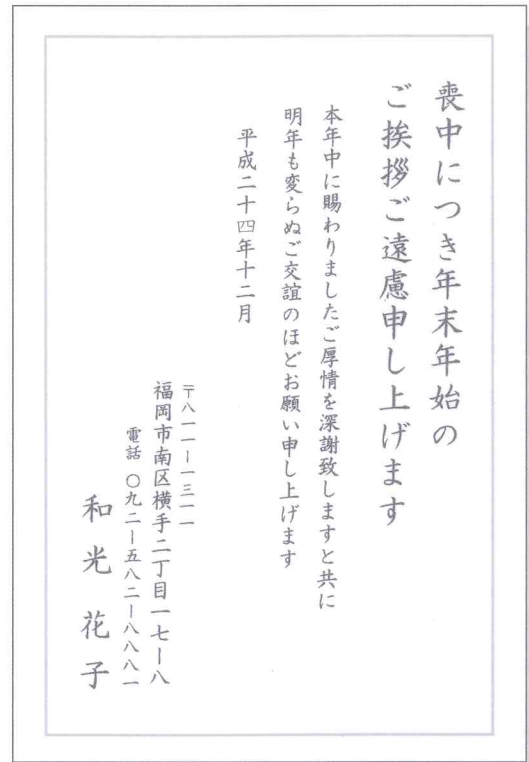 喪中につき年末年始の
ご挨拶ご遠慮申し上げます
本年中に賜わりましたご厚情を深謝致しますと共に
明年も変らぬご交誼のほどお願い申し上げます
平成二十四年十二月
〒八一一ー一三一一
福岡市南区横手二丁目一七ー八
電話 〇九二ー五八二ー八八八一
和光花子